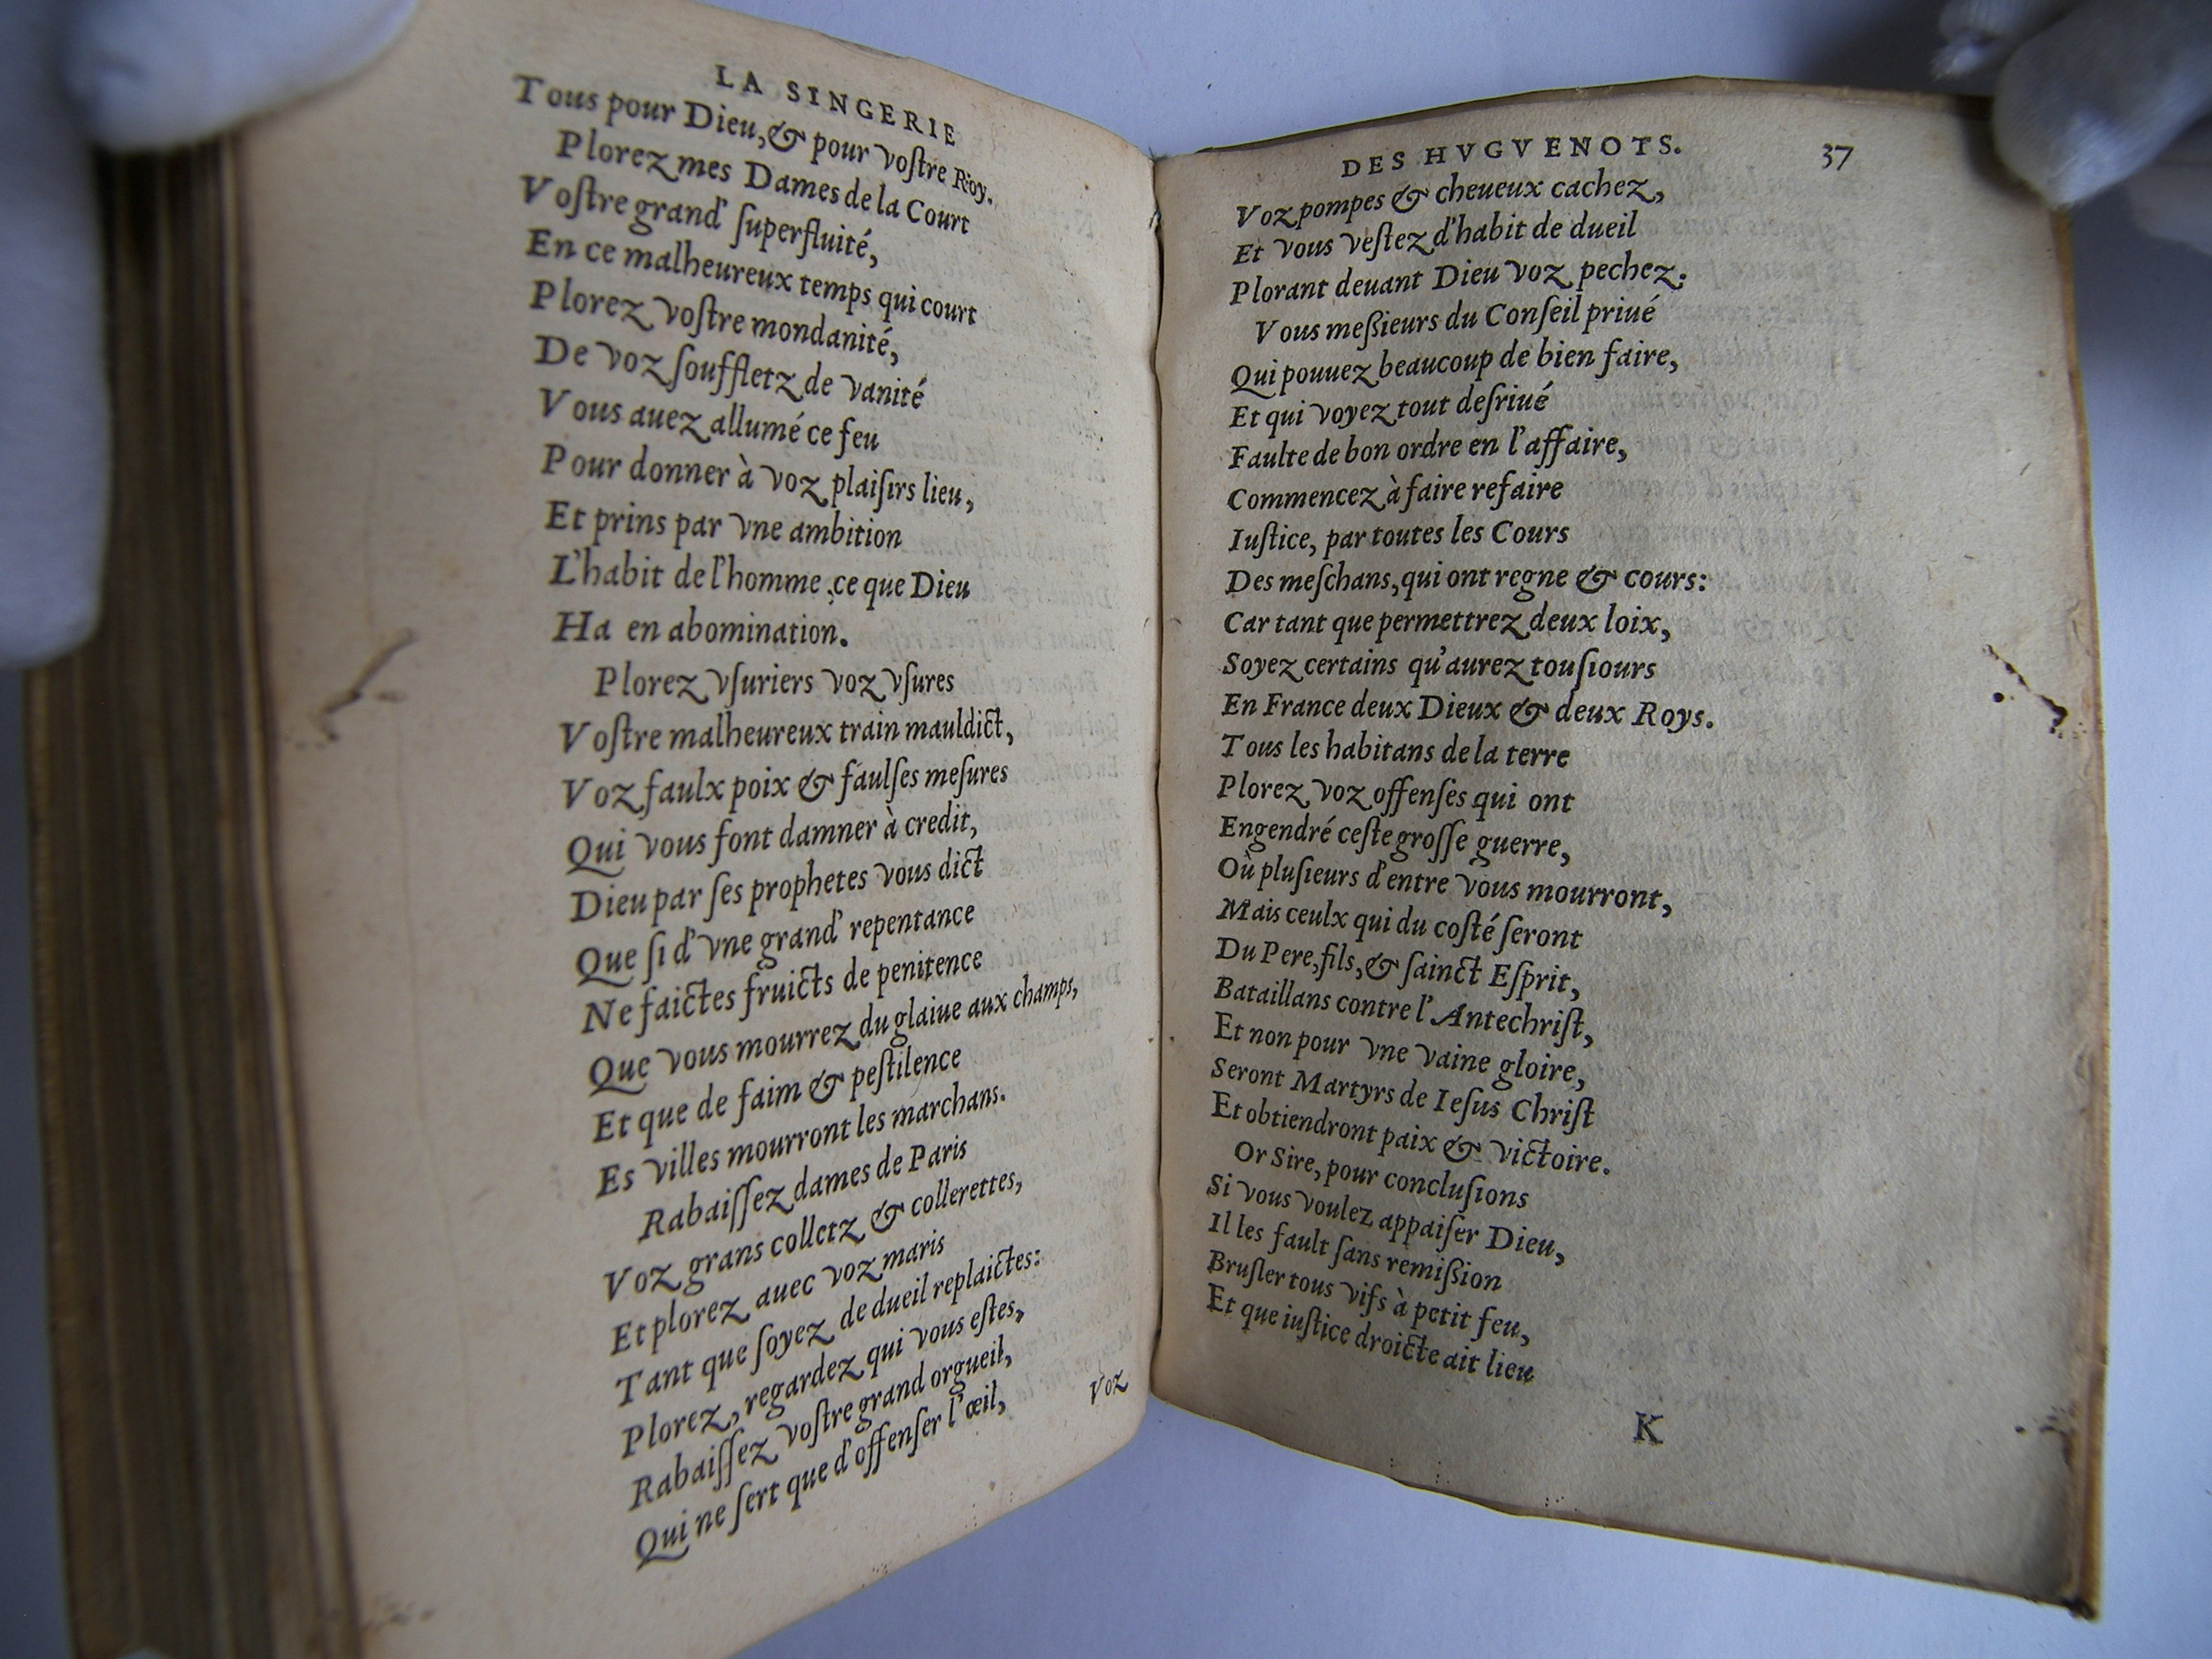 LA SINGERIE
Tous pour Dieu,& pour vostre Roy.
Plorez mes Dames de la Court
Vostre grand' superfluité,
En ce malheureux temps qui court
Plorez vostre mondanité,
De voz souffletz de vanité
Vous auez allumé ce feu
Pour donner à voz plaisirs lieu,
Et prins par vne ambition
L'habit de l'homme ,ce que Dieu
Ha en abomination.
Plorez vsuriers voz vsures
Vostre malheureux train mauldict,
Voz faulx poix & faulses mesures
Qui vous font damner à credit,
Dieu par ses prophetes vous dict
Que si d'vne grand' repentance
Ne faictes fruicts de penitence
Que vous mourrez du glaiue aux champs,
Et que de faim & pestilence
Es villes mourront les marchans.
Rabaissez dames de Paris
Voz grans colletz & collerettes,
Et plorez auec voz maris
Tant que soyez de dueil replaictes:
Plorez, regardez qui vous estes,
Rabaissez vostre grand orgueil,
Qui ne sert que d'offenser l'œil,
Voz
DES HVGVENOTS. 37
Voz pompes & cheueux cachez,
Et vous vestez d'habit de dueil
Plorant deuant Dieu voz pechez.
Vous meßieurs du Conseil priué
Qui pouuez beaucoup de bien faire,
Et qui voyez tout desriué
Faulte de bon ordre en l'affaire,
Commencez à faire refaire
Iustice, par toutes les Cours
Des meschans,qui ont regne & cours:
Car tant que permettrez deux loix,
Soyez certains qu'aurez tousiours
En France deux Dieux & deux Roys.
Tous les habitans de la terre
Plorez voz offenses qui ont
Engendré ceste grosse guerre,
Où plusieurs d'entre vous mourront,
Mais ceulx qui du costé seront
Du Pere,fils,& sainct Esprit,
Bataillans contre l'Antechrist,
Et non pour vne vaine gloire,
Seront Martyrs de Iesus Christ
Et obtiendront paix & victoire.
Or Sire, pour conclusions
Si vous voulez appaiser Dieu,
Il les fault sans remißion
Brusler tous vifs à petit feu,
Et que iustice droicte ait lieu
K